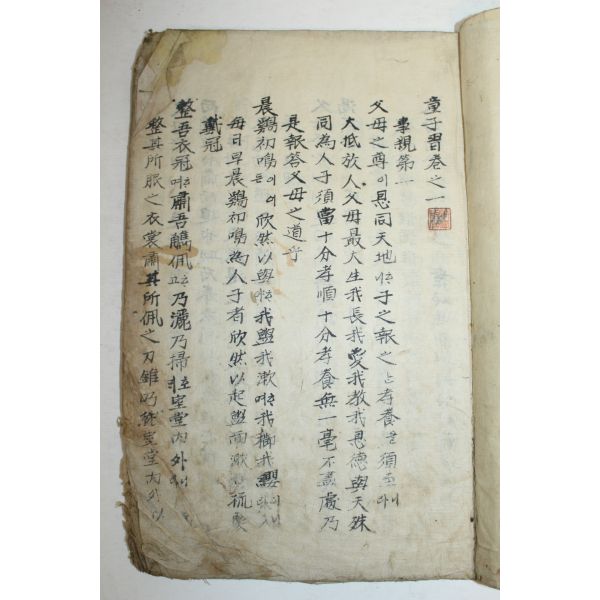 童子習卷之一
事親第一
父母之尊이 恩同天地 子之報之 孝養 須至
大抵於人父母最大生我長我愛我敎我恩德與天殊
同為人子須當十分孝順十分孝養無一毫不盡處乃
是報答父母之道乎
晨鷄初鳴 欣然以興 我盥我漱 我櫛我纓
每日早晨鷄初鳴為人子者欣然以起盥面漱 梳髮
戴冠
整吾衣冠 肅吾觿佩 乃灑乃掃 室堂內外
整其所服之衣裳肅其所佩之刀錐乃 室堂內外以